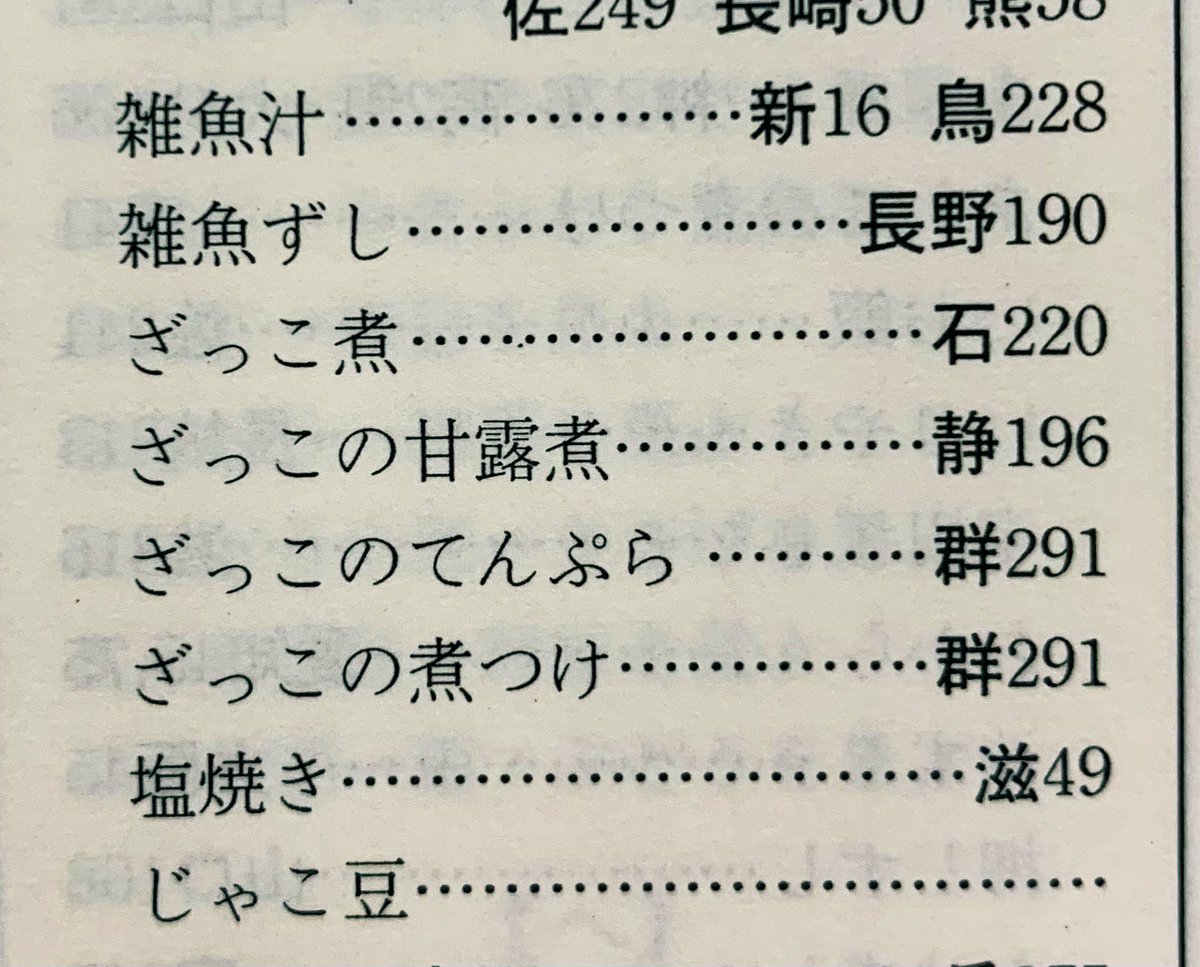 佐249 長崎50 熊58
雑魚汁………………新16 鳥228
雑魚ずし…………………長野190
ざっこ煮……………………石220
ざっこの甘露煮……………静196
ざっこのてんぷら …………群291
ざっこの煮つけ……………群291
塩焼き…………………………滋49
じゃこ豆……………………………